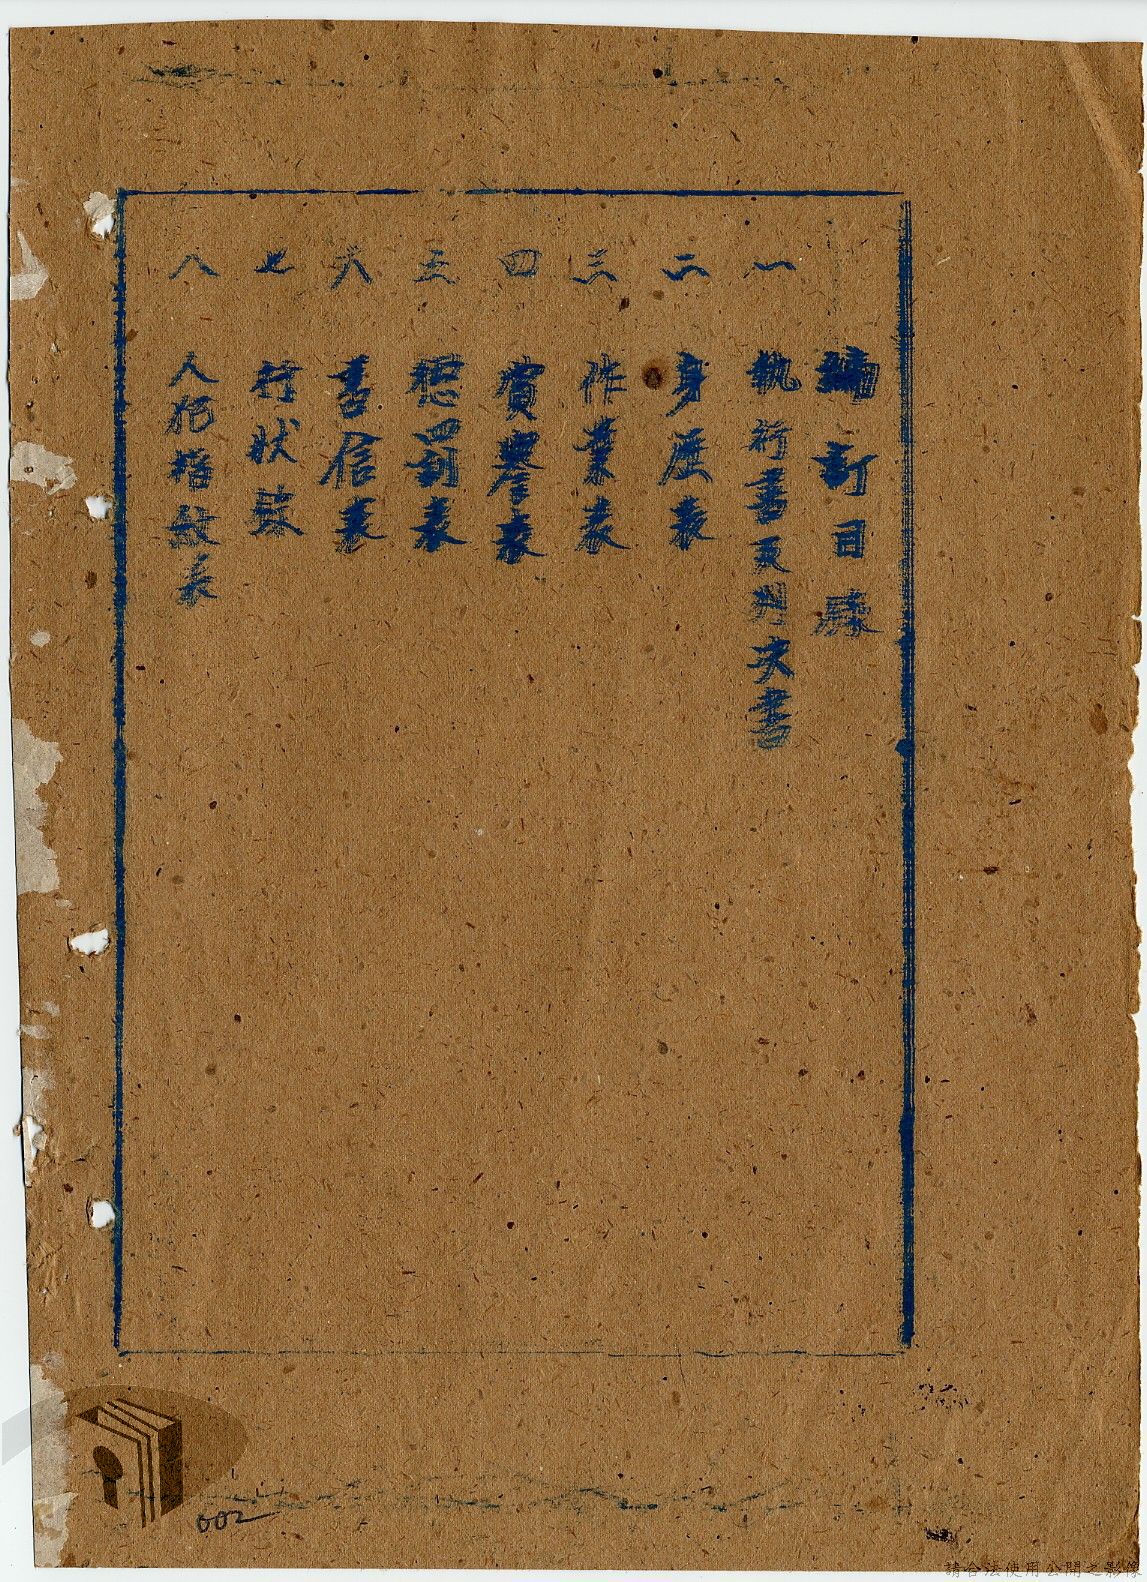 編訂目錄
一 執行書及判決書
二 身歷表
三 作業表
四 賞譽表
五 懲罰表
六 書信表
七 行狀錄
八 人相指紋表
002
請合法使用公開之影像